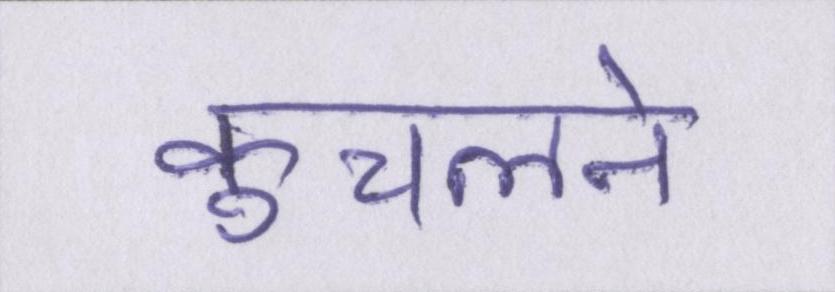 कुचलने